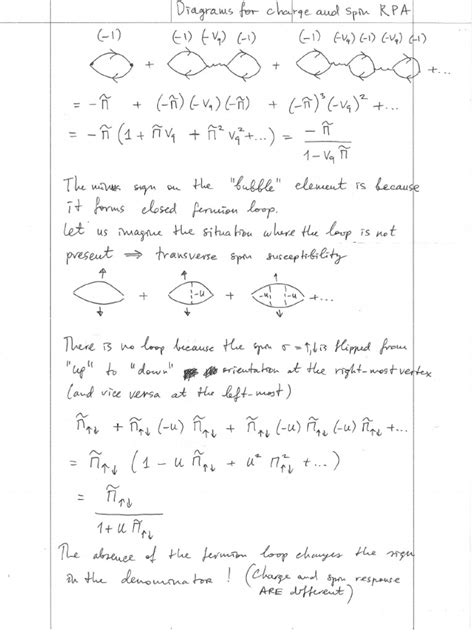 Diagrams for charge and spin RPA
(-1) (-1) (-V_q) (-1) (-1) (-V_q) (-1) (-V_q) (-1)
+ + +...
= -π̃ + (-π̃)(-V_q)(-π̃) + (-π̃)³(-V_q)² + ...
= -π̃ (1 + π̃V_q + π̃²V_q² + ...) = -π̃ / (1 - V_q π̃)
The minus sign on the "bubble" element is because
it forms closed fermion loop.
Let us imagine the situation where the loop is not
present ⇒ transverse spin susceptibility
-u + -u -u + ...
There is no loop because the spin σ=↑,↓ is flipped from
"up" to "down" orientation at the right-most vertex
(and vice versa at the left-most)
π̃↑↓ + π̃↑↓ (-u) π̃↑↓ + π̃↑↓ (-u) π̃↑↓ (-u) π̃↑↓ + ...
= π̃↑↓ (1 - u π̃↑↓ + u² π²↑↓ + ...)
= π̃↑↓ / (1 + u π̃↑↓)
The absence of the fermion loop changes the sign
in the denominator ! (Charge and spin response
ARE different)